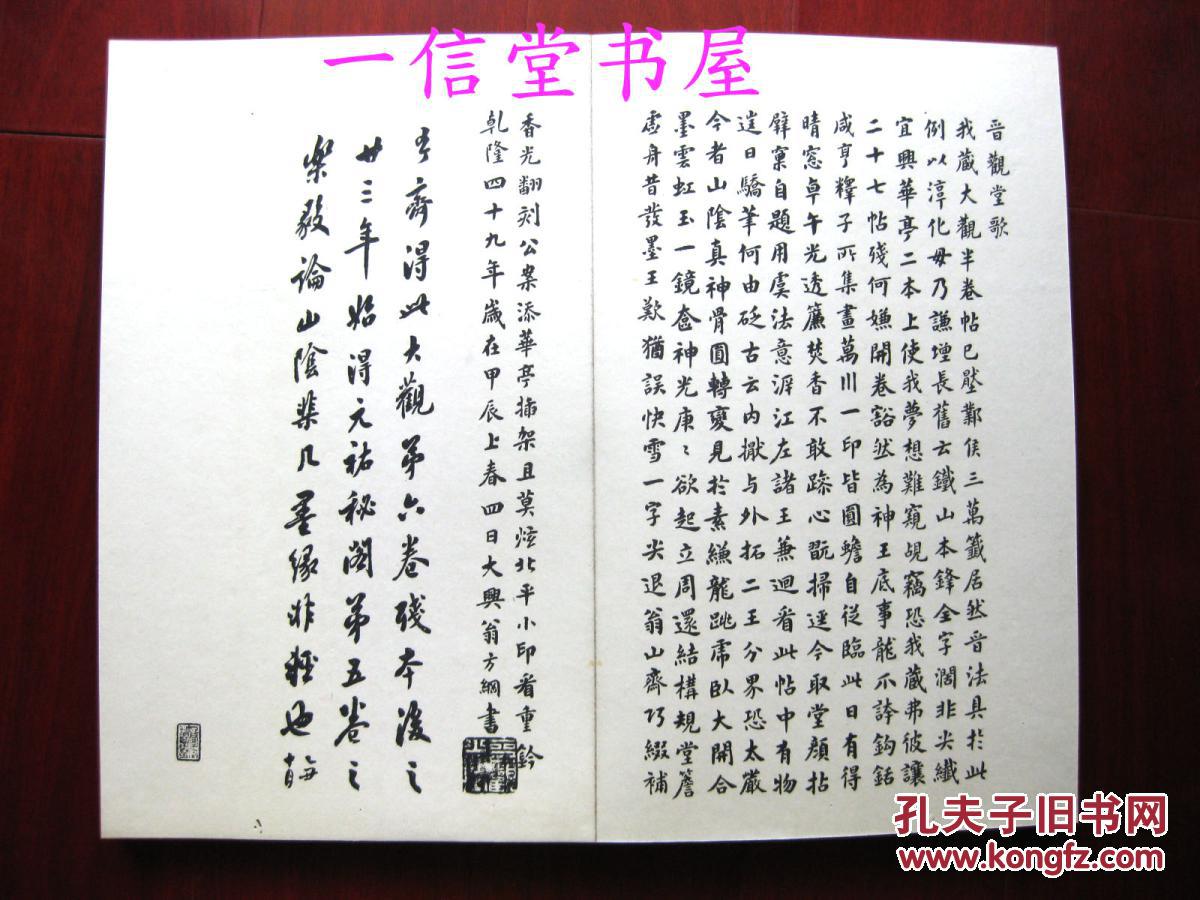 一信堂书屋
晋觀堂歌
我藏大觀半卷帖已壓鄴侯三萬籤居然晋法具於此
例以淳化毋乃謙增長舊云鐵山本鋒全字濶非尖纖
宜興華亭二本上使我夢想難窺覘竊恐我藏弗彼讓
二十七帖殘何嫌開卷豁然為神王底事龍不誇鈎銛
咸亨釋子所集畫萬川一印皆圓蟾自從臨此日有得
晴窓卓午光透簾焚香不敢踪心翫掃逕今取堂顔拈
擘窠自題用虞法意游江左諸王兼迴看此帖中有物
逞日驕筆何由砭古云内擫与外拓二王分界恐太嚴
今者山陰真神骨圓轉變見於素縑龍跳虎臥大開合
墨雲虹玉一鏡奩神光庚〻欲起立周還結構規堂簷
虛舟昔發墨王歎猶誤快雪一字尖退翁山齋巧綴補
香光翻刻公案添華亭插架且莫炫北平小印看重鈐
乹隆四十九年歲在甲辰上春四日大興翁方綱書
齋得此大觀第六卷殘本後之
廿三年始得元祐秘閣第五卷之
樂毅論山陰棐几墨緣非輕也
孔夫子旧书网
www.kongfz.com